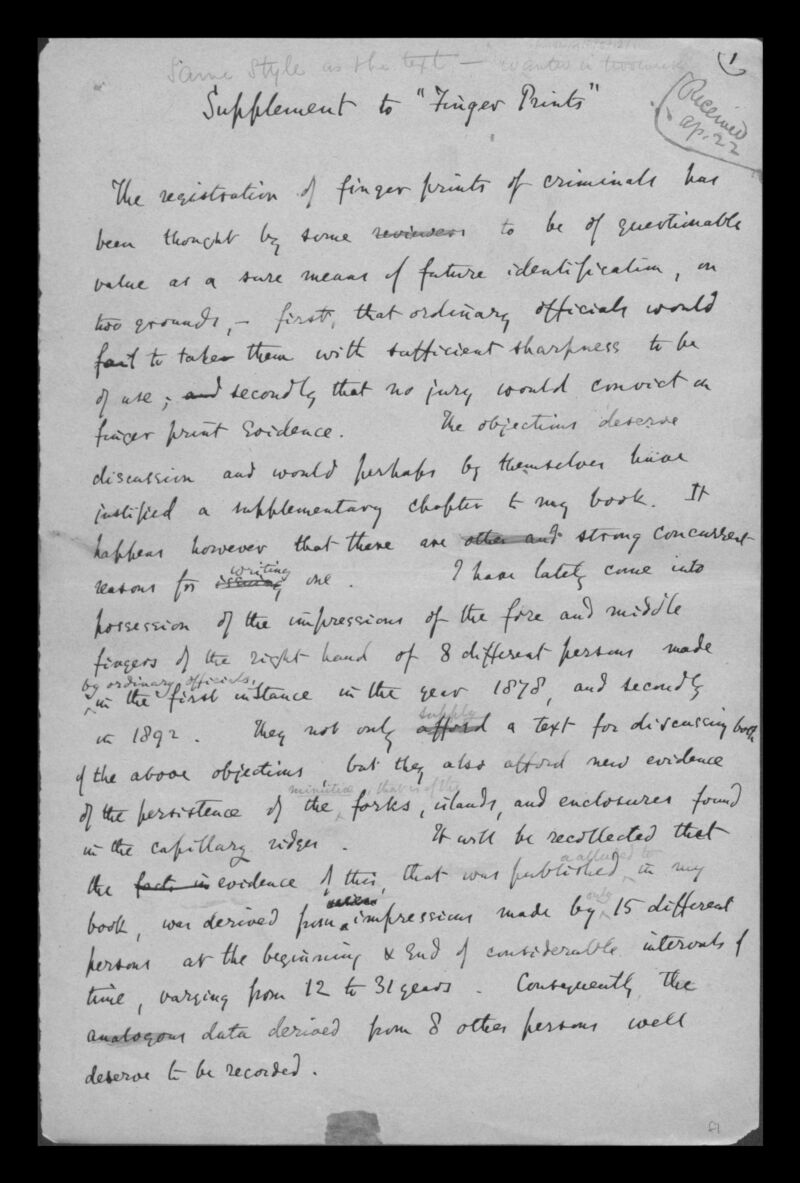 1
Same style as the text —
Supplement to "Finger Prints"
Received
ap. 22
The registration of finger prints of criminals has
been thought by some reviewers to be of questionable
value as a sure means of future identification, on
two grounds, – first, that ordinary officials would
fail to take them with sufficient sharpness to be
of use; and secondly that no jury would convict on
finger print evidence. The objections deserve
discussion and would perhaps by themselves have
justified a supplementary chapter to my book. It
happens however that there are other and strong concurrent
writing
reasons for issuing one. I have lately come into
possession of the impressions of the fore and middle
fingers of the right hand of 8 different persons made
by ordinary officials,
in the first instance in the year 1878, and secondly
supply
in 1892. They not only afford a text for discussing both
of the above objections but they also afford new evidence
minutiae, that is of the
of the persistence of the forks, islands, and enclosures found
in the capillary ridges. It will be recollected that
alluded to
the facts in evidence of this, that was published in my
only
book, was derived from impressions made by 15 different
persons at the beginning & end of considerable intervals of
time, varying from 12 to 31 years. Consequently the
analogous data derived from 8 other persons well
deserve to be recorded.